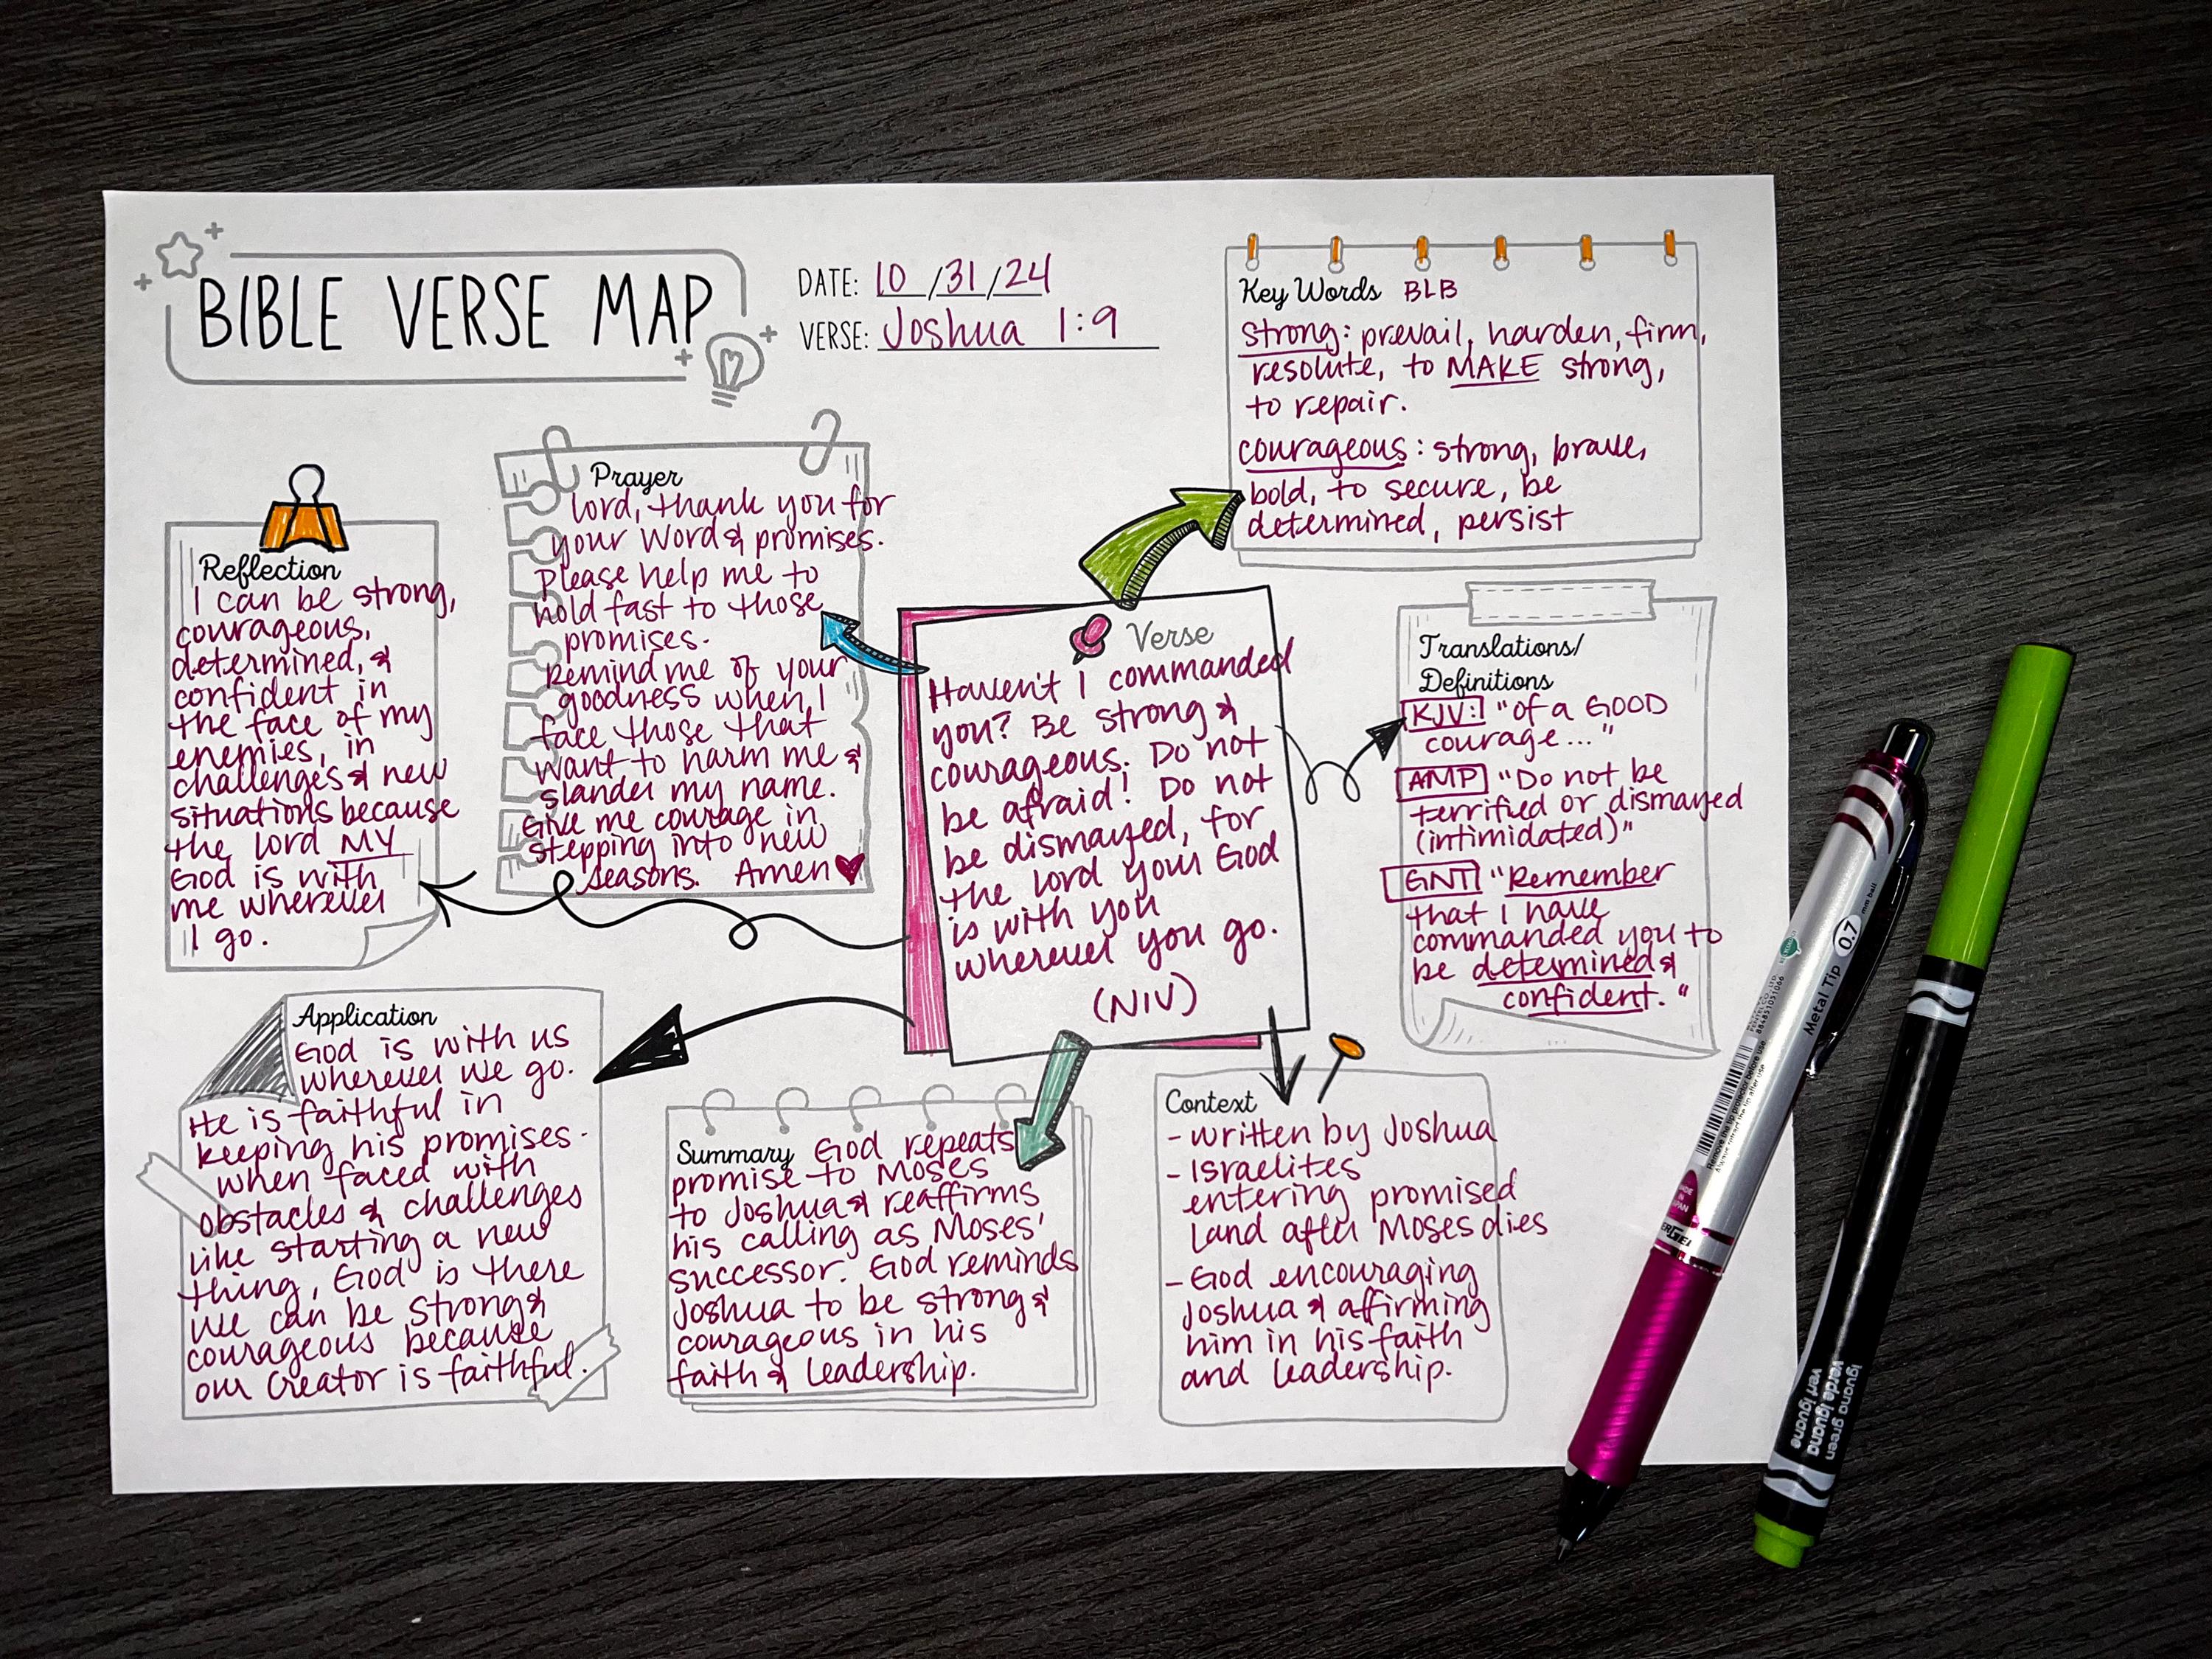 BIBLE VERSE MAP
DATE: 10/31/24
VERSE: Joshua 1:9
Key Words BLB
strong: prevail, harden, firm,
resolute, to MAKE strong,
to repair.
courageous: strong, brave,
bold, to secure, be
determined, persist
Prayer
Lord, thank you for
your Word & promises.
Please help me to
hold fast to those
promises.
Remind me of your
goodness when I
face those that
want to harm me &
slander my name.
Give me courage in
stepping into new
seasons. Amen
Reflection
I can be strong,
courageous,
determined, &
confident in
the face of my
enemies, in
challenges & new
situations because
the Lord MY
God is with
me wherever
I go.
Verse
Haven't I commanded
you? Be strong &
courageous. Do not
be afraid! Do not
be dismayed, for
the Lord your God
is with you
wherever you go.
(NIV)
Translations/
Definitions
KJV: "of a GOOD
courage..."
AMP "Do not be
terrified or dismayed
(intimidated)"
GNT "Remember
that I have
commanded you to
be determined &
confident."
Application
God is with us
wherever we go.
He is faithful in
keeping his promises.
When faced with
obstacles & challenges
like starting a new
thing, God is there
We can be strong &
courageous because
our Creator is faithful.
Summary God repeats
promise to Moses
to Joshua & reaffirms
his calling as Moses'
successor. God reminds
Joshua to be strong &
courageous in his
faith & leadership.
Context
- written by Joshua
- Israelites
entering promised
Land after Moses dies
- God encouraging
Joshua & affirming
him in his faith
and leadership.
0.7
Metal Tip
iguana green
verde iguana
vert iguane